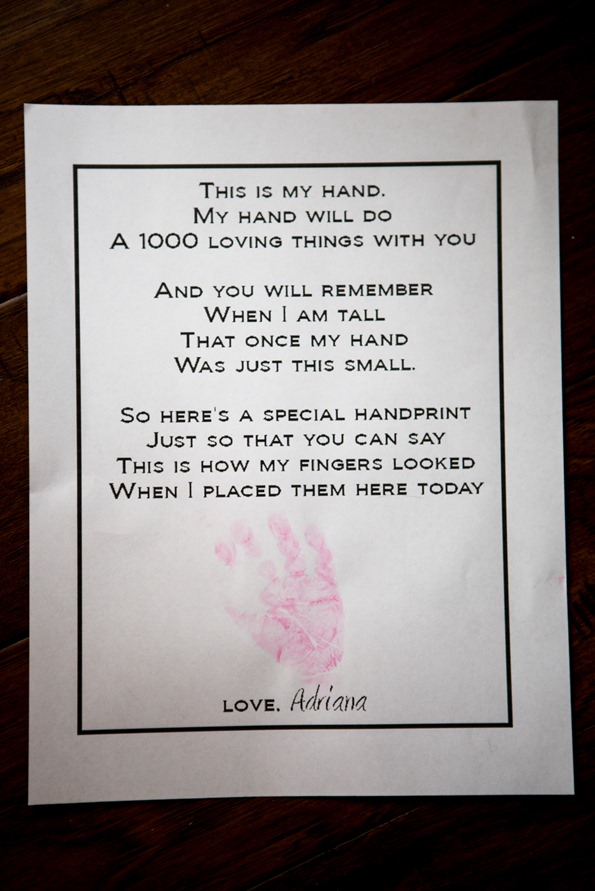 This is my hand.
My hand will do
A 1000 loving things with you
And you will remember
When I am tall
That once my hand
Was just this small.
So here's a special handprint
Just so that you can say
This is how my fingers looked
When I placed them here today
love, Adriana